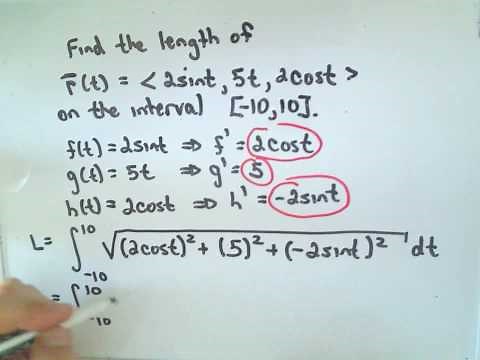 Find the length of
r̄(t) = < 2sint, 5t, 2cost >
on the interval [-10,10].
f(t) = 2sint ⇒ f' = 2cost
g(t) = 5t ⇒ g' = 5
h(t) = 2cost ⇒ h' = -2sint
L = ∫_{-10}^{10} √((2cost)² + (5)² + (-2sint)²) dt
= ∫_{-10}^{10}